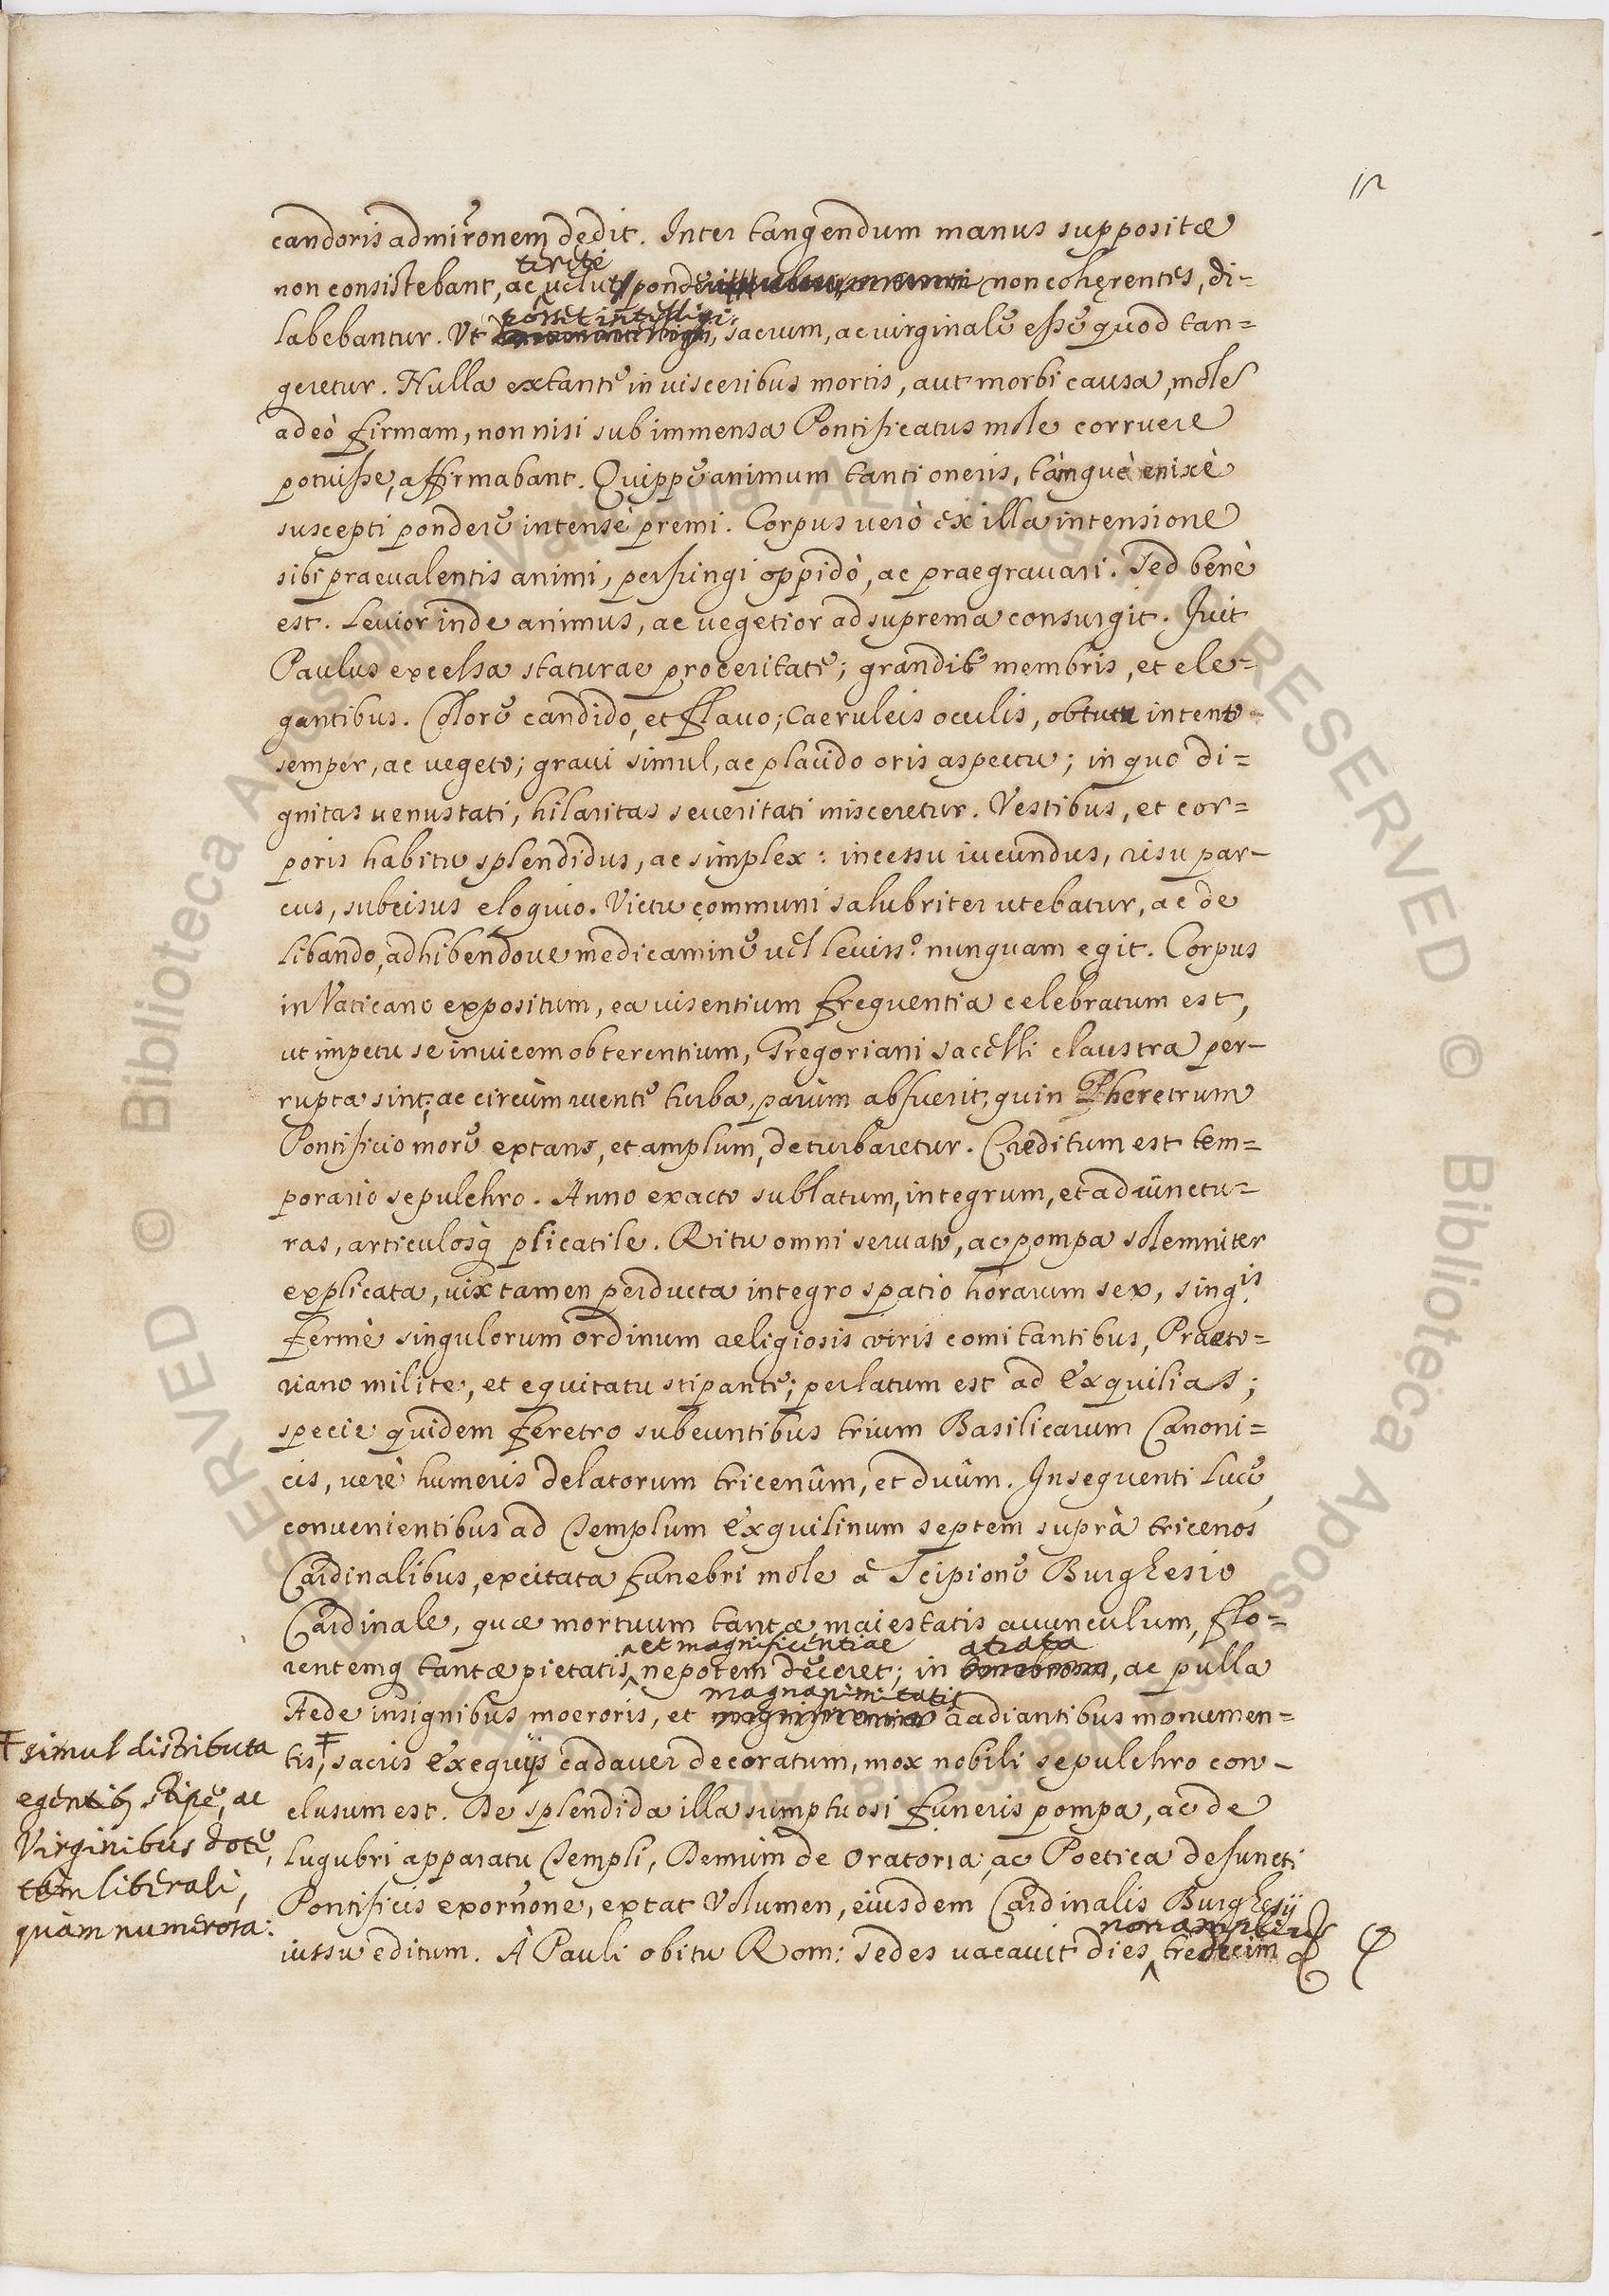 12
candoris admirõnem dedit. Inter tangendum manus suppositæ
teretè
non consistebant, ac velut ponderi non cohęrentes, di=
posset intelligi
labebantur. Vt sacrum, ac virginale esse quod tan=
geretur. Nulla extante in visceribus mortis, aut morbi causa, molē
adeò firmam, non nisi sub immensa Pontificatus mole corruere
potuisse, affirmabant. Quippe animum tanti oneris, tàmque enixè
suscepti pondere intensè premi. Corpus verò ex illa intensione
sibi praevalentis animi, perfringi oppidò, ac praegravari. Sed benè
est. Levior inde animus, ac vegetior ad suprema consurgit. Fuit
Paulus excelsa staturae proceritate; grandib' membris, et ele=
gantibus. Colore candido, et flavo; Caeruleis oculis, obtutu intento
semper, ac vegeto; gravi simul, ac placido oris aspectu; in quo di=
gnitas venustati, hilaritas severitati misceretur. Vestibus, et cor=
poris habitu splendidus, ac simplex: incessu iucundus, risu par-
cus, subcisus eloquio. Victu communi salubriter utebatur, ac de
libando, adhibendove medicamine vel leviss.º nunquam egit. Corpus
in Vaticano expositum, ea visentium frequentia celebratum est,
ut impetu se invicem obterentium, Gregoriani sacelli claustra per-
rupta sint; ac circùm ruente turba, parùm abfuerit, quin Pheretrum
Pontificio more extans, et amplum, deturbaretur. Creditum est tem=
porario sepulchro. Anno exacto sublatum, integrum, et ad iunctu=
ras, articulosq; plicatile. Ritu omni servato, ac pompa solemniter
explicata, vix tamen perducta integro spatio horarum sex, sing.is
fermè singulorum ordinum religiosis viris comitantibus, Praeto=
riano milite, et equitatu stipante; perlatum est ad Exquilias;
specie quidem feretro subeuntibus trium Basilicarum Canoni=
cis, verè humeris delatorum tricenûm, et duûm. Insequenti luce,
convenientibus ad Templum Exquilinum septem suprà tricenos
Cardinalibus, excitata funebri mole a Scipione Burghesio
Cardinale, quæ mortuum tantæ maiestatis avunculum, flo=
et magnificentiae atrata
rentemq; tantæ pietatis nepotem deceret; in, ac pulla
magnanimitatis
Aede insignibus moeroris, et radiantibus monumen=
tis, sacris Exequijs cadaver decoratum, mox nobili sepulchro con-
clusum est. De splendida illa sumptuosi funeris pompa, ac de
lugubri apparatu Templi, Demùm de Oratoria, ac Poetica defuncti
Pontificis exornõne, extat Volumen, eiusdem Cardinalis Burghesij
non amplius
iussu editum. À Pauli obitu Rom: Sedes vacavit dies tredecim
simul distributa
egentib; stipe, ac
Virginibus dote,
tàm liberali,
quàm numerosa: